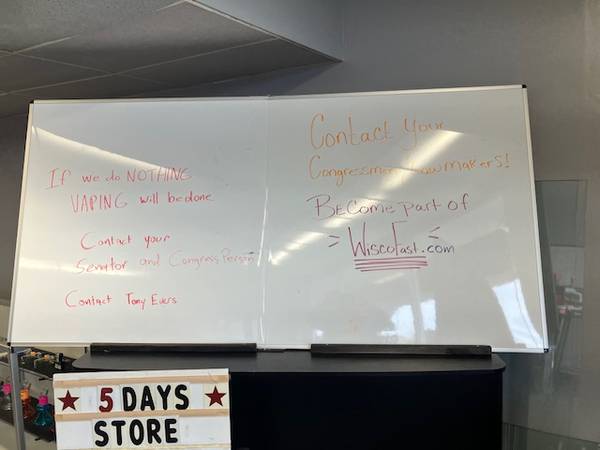 If we do NOTHING
VAPING will be done
Contact your
Senator and Congress Person
Contact Tony Evers
Contact Your
Lawmakers!
BECome part of
WiscoFast.com
5 DAYS
STORE